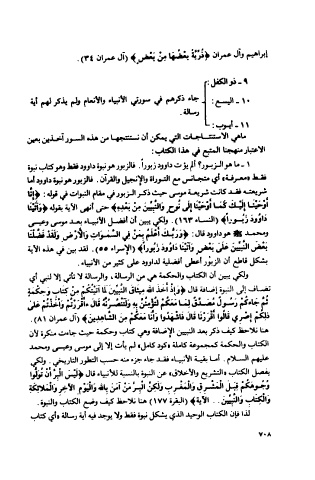 إبراهيم وآل عمران ﴿ذُرِّيَّةً بَعْضُهَا مِنْ بَعْضٍ﴾ (آل عمران ٣٤).
٩ - ذو الكفل:
١٠ - اليسع: جاء ذكرهم في سورتي الأنبياء والأنعام ولم يذكر لهم أية رسالة.
١١ - أيوب:
ماهي الاستنتاجات التي يمكن أن نستنتجها من هذه السور آخذين بعين
الاعتبار منهجنا المتبع في هذا الكتاب:
١ - ما هو الزبور؟ ألم يؤت داوود زبوراً. فالزبور هو نبوة داوود فقط وهو كتاب نبوة
فقط «معرفة» أي متجانس مع التوراة والإنجيل والقرآن. فالزبور هو نبوة داوود أما
شريعته فقد كانت شريعة موسى حيث ذكر الزبور في مقام النبوات في قوله: ﴿إِنَّا
أَوْحَيْنَا إِلَيْكَ كَمَا أَوْحَيْنَا إِلَى نُوحٍ وَالنَّبِيِّينَ مِنْ بَعْدِهِ﴾ حتى أنهى الآية بقوله ﴿وَآتَيْنَا
دَاوُودَ زَبُوراً﴾ (النساء ١٦٣). ولكي يبين أن أفضل الأنبياء بعد موسى وعيسى
ومحمد ﷺ هو داوود قال: ﴿وَرَبُّكَ أَعْلَمُ بِمَنْ فِي السَّمَوَاتِ وَالْأَرْضِ وَلَقَدْ فَضَّلْنَا
بَعْضَ النَّبِيِّينَ عَلَى بَعْضٍ وَآتَيْنَا دَاوُودَ زَبُوراً﴾ (الإسراء ٥٥). لقد بين في هذه الآية
بشكل قاطع أن الزبور أعطى أفضلية لداوود على كثير من الأنبياء.
ولكي يبين أن الكتاب والحكمة هي من الرسالة، والرسالة لا تأتي إلا لنبي أي
تضاف إلى النبوة إضافة قال ﴿وَإِذْ أَخَذَ اللهُ مِيثَاقَ النَّبِيِّينَ لَمَا آتَيْتُكُمْ مِنْ كِتَابٍ وَحِكْمَةٍ
ثُمَّ جَاءَكُمْ رَسُولٌ مُصَدِّقٌ لِمَا مَعَكُمْ لَتُؤْمِنُنَّ بِهِ وَلَتَنْصُرُنَّهُ قَالَ أَأَقْرَرْتُمْ وَأَخَذْتُمْ عَلَى
ذَلِكُمْ إِصْرِي قَالُوا أَقْرَرْنَا قَالَ فَاشْهَدُوا وَأَنَا مَعَكُمْ مِنَ الشَّاهِدِينَ﴾ (آل عمران ٨١).
هنا نلاحظ كيف ذكر بعد النبيين الإضافة وهي كتاب وحكمة حيث جاءت منكرة لأن
الكتاب والحكمة كمجموعة كاملة «كود كامل» لم يأت إلا إلى موسى وعيسى ومحمد
عليهم السلام. أما بقية الأنبياء فقد جاء جزء منه حسب التطور التاريخي. ولكي
يفصل الكتاب «التشريع والأخلاق» عن النبوة بالنسبة للأنبياء قال ﴿لَيْسَ الْبِرَّ أَنْ تُوَلُّوا
وُجُوهَكُمْ قِبَلَ الْمَشْرِقِ وَالْمَغْرِبِ وَلَكِنَّ الْبِرَّ مَنْ آمَنَ بِاللهِ وَالْيَوْمِ الْآخِرِ وَالْمَلَائِكَةِ
وَالْكِتَابِ وَالنَّبِيِّينَ .. الآية﴾ (البقرة ١٧٧) هنا نلاحظ كيف وضع الكتاب والنبوة.
لذا فإن الكتاب الوحيد الذي يشكل نبوة فقط ولا يوجد فيه أية رسالة «أي كتاب
٧٠٨